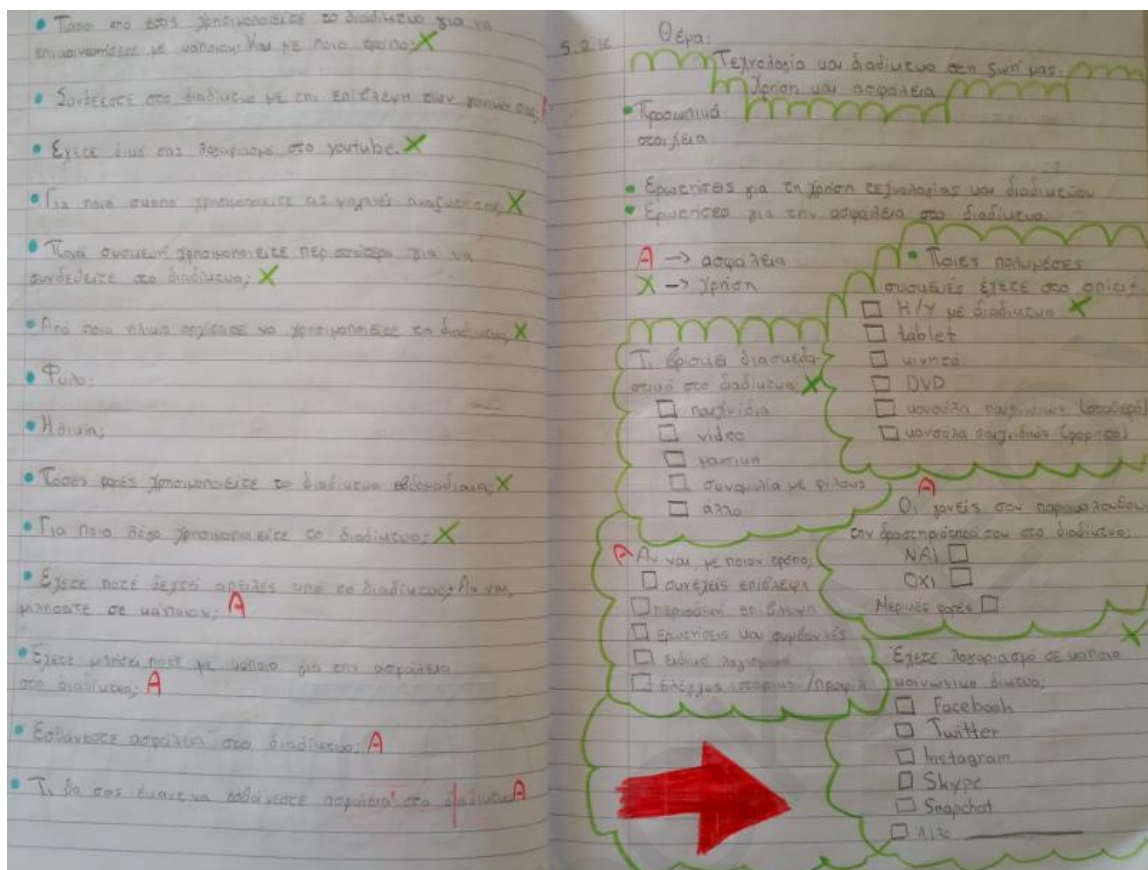 • Πόσοι από εσάς χρησιμοποιείτε το διαδίκτυο για να
επικοινωνήσετε με κάποιον; Και με ποιο τρόπο; X
• Συνδέεστε στο διαδίκτυο με την επίβλεψη των γονιών σας;
• Έχετε δικό σας λογαριασμό στο youtube. X
• Για ποιό σκοπό χρησιμοποιείτε τις μηχανές αναζήτησης; X
• Ποιά συσκευή χρησιμοποιείτε περισσότερο για να
συνδεθείτε στο διαδίκτυο; X
• Από ποια ηλικία αρχίσατε να χρησιμοποιείτε το διαδίκτυο; X
• Φύλο:
• Ηλικία;
• Πόσες φορές χρησιμοποιείτε το διαδίκτυο εβδομαδιαία; X
• Για ποιο λόγο χρησιμοποιείτε το διαδίκτυο; X
• Έχετε ποτέ δεχτεί απειλές από το διαδίκτυο; Αν ναι,
μιλήσατε σε κάποιον; Α
• Έχετε μιλήσει ποτέ με κάποιο για την ασφάλεια
στο διαδίκτυο; Α
• Εσθάνεστε ασφάλεια στο διαδίκτυο; Α
• Τι θα σας έκανε να εσθάνεστε ασφάλεια στο διαδίκτυο Α
5.2.16
Θέμα:
Τεχνολογία και διαδίκτυο στη ζωή μας:
Χρήση και ασφάλεια
• Προσωπικά
στοιχεία
• Ερωτήσεις για τη χρήση τεχνολογίας και διαδικτύου
• Ερωτήσεις για την ασφάλεια στο διαδίκτυο
Α -> ασφάλεια
X -> χρήση
• Ποιες πολυμέσες
συσκευές έχετε στο σπίτι;
Η/Υ με διαδίκτυο X
tablet
κινητό
DVD
κονσόλα παιχνιδιών (σταθερή)
κονσόλα παιχνιδιών (φορητή)
Τι βρίσκεις διασκεδα-
στικό στο διαδίκτυο; X
παιχνίδια
video
μουσική
συνομιλία με φίλους
άλλο
Α
Οι γονείς σου παρακολουθούν
την δραστηριότητά σου στο διαδίκτυο;
ΝΑΙ
ΟΧΙ
Μερικές φορές
Α Αν ναι, με ποιον τρόπο;
συνεχείς επίβλεψη
περιοδική επίβλεψη
ερωτήσεις και συμβουλές
ειδικό λογισμικό
έλεγχος ιστορικού/προφίλ
X
Έχετε λογαριασμό σε κάποιο
κοινωνικό δίκτυο;
Facebook
Twitter
Instagram
Skype
Snapchat
Άλλο